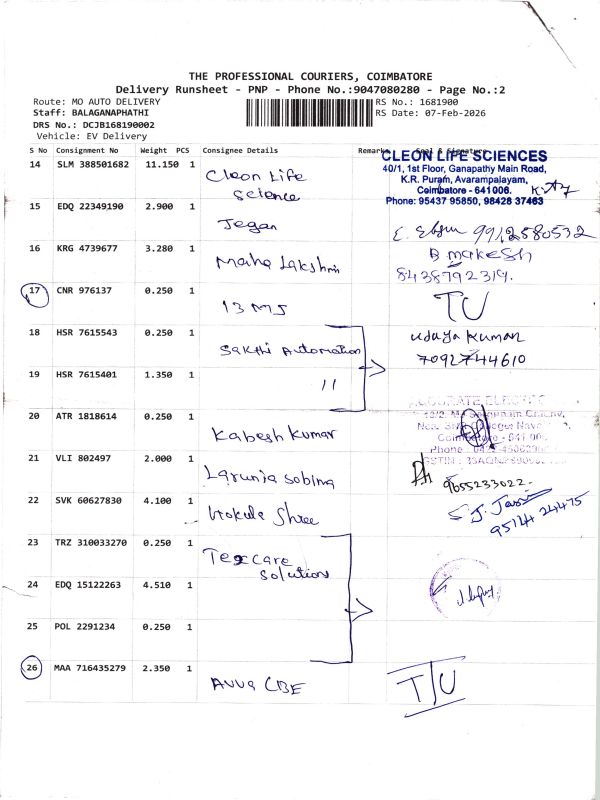 THE PROFESSIONAL COURIERS, COIMBATORE
Delivery Runsheet - PNP - Phone No.:9047080280 - Page No.:2
Route: MO AUTO DELIVERY
RS No.: 1681900
Staff: BALAGANAPHATHI
RS Date: 07-Feb-2026
DRS No.: DCJB168190002
Vehicle: EV Delivery
S No Consignment No Weight PCS Consignee Details Remarks Seal & Signature
CLEON LIFE SCIENCES
40/1, 1st Floor, Ganapathy Main Road,
K.R. Puram, Avarampalayam,
Coimbatore - 641 006.
Phone: 95437 95850, 98428 37463
14 SLM 388501682 11.150 1 Cleon Life
Science
15 EDQ 22349190 2.900 1 Jegan 9912580532
16 KRG 4739677 3.280 1 Maha Lakshmi B makesh
8438792319.
17 CNR 976137 0.250 1 13 MJ TU
18 HSR 7615543 0.250 1 Sakthi Automation Udaya Kumar
7092744610
19 HSR 7615401 1.350 1 11
20 ATR 1818614 0.250 1 Kabesh Kumar
Phone
21 VLI 802497 2.000 1 Sobina 9655233022.
22 SVK 60627830 4.100 1 Gokula Shree 95141 24475
23 TRZ 310033270 0.250 1 Texcare
Solutions
24 EDQ 15122263 4.510 1
25 POL 2291234 0.250 1
26 MAA 716435279 2.350 1 CBE T/U